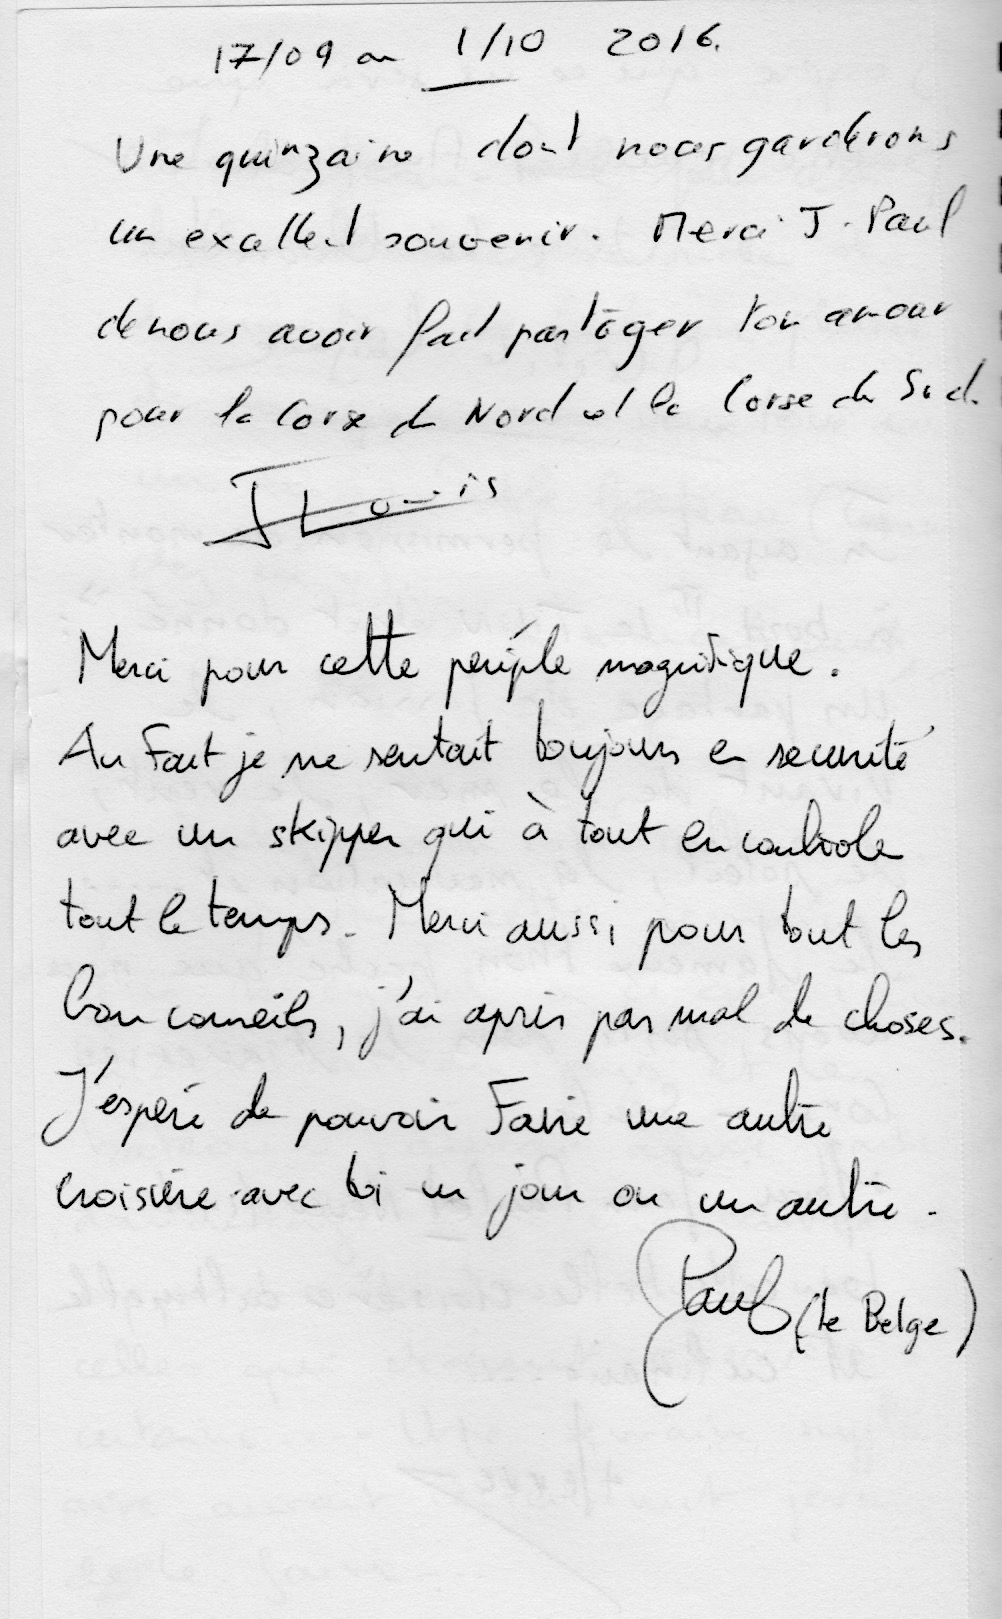 17/09 au 1/10 2016.
Une quinzaine dont nous garderons
un excellent souvenir. Merci J. Paul
de nous avoir fait partager ton amour
pour la Corse du Nord et la Corse du Sud.
J Louis
Merci pour cette periple magnifique.
Au Fait je me sentait toujours en securité
avec un skipper qui à tout en controle
tout le temps. Merci aussi pour tout les
bon conseils, j'ai apris pas mal de choses.
J'espère de pouvoir Faire une autre
croisière avec toi un jour ou un autre.
Paul (le Belge)